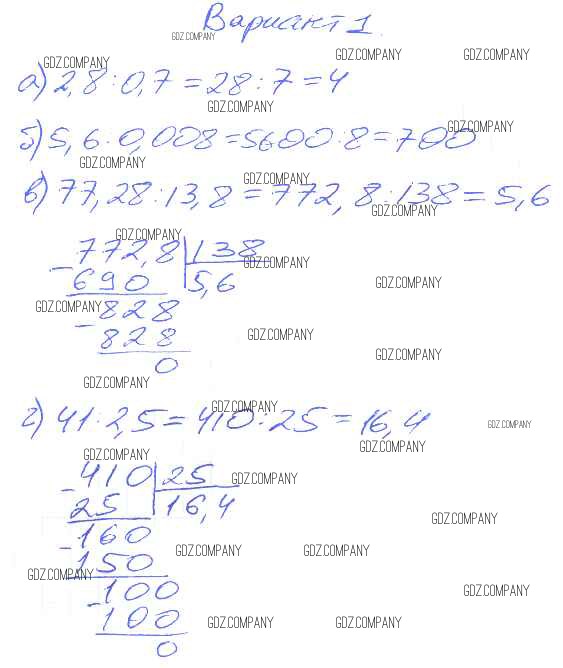 Вариант 1
GDZ.COMPANY
GDZ.COMPANY GDZ.COMPANY GDZ.COMPANY
а) 2,8 : 0,7 = 28 : 7 = 4
GDZ.COMPANY
б) 5,6 : 0,008 = 5600 : 8 = 700
GDZ.COMPANY
GDZ.COMPANY
GDZ.COMPANY
в) 77,28 : 13,8 = 772,8 : 138 = 5,6
GDZ.COMPANY
GDZ.COMPANY
772,8 | 138
GDZ.COMPANY
- 690 5,6
GDZ.COMPANY
GDZ.COMPANY
828
- 828
GDZ.COMPANY
GDZ.COMPANY
0
GDZ.COMPANY
GDZ.COMPANY
г) 41 : 2,5 = 410 : 25 = 16,4
GDZ.COMPANY
GDZ.COMPANY
GDZ.COMPANY
410 | 25
GDZ.COMPANY
- 25 16,4
GDZ.COMPANY
160
- 150
GDZ.COMPANY GDZ.COMPANY
GDZ.COMPANY
100
GDZ.COMPANY
- 100
GDZ.COMPANY GDZ.COMPANY
0